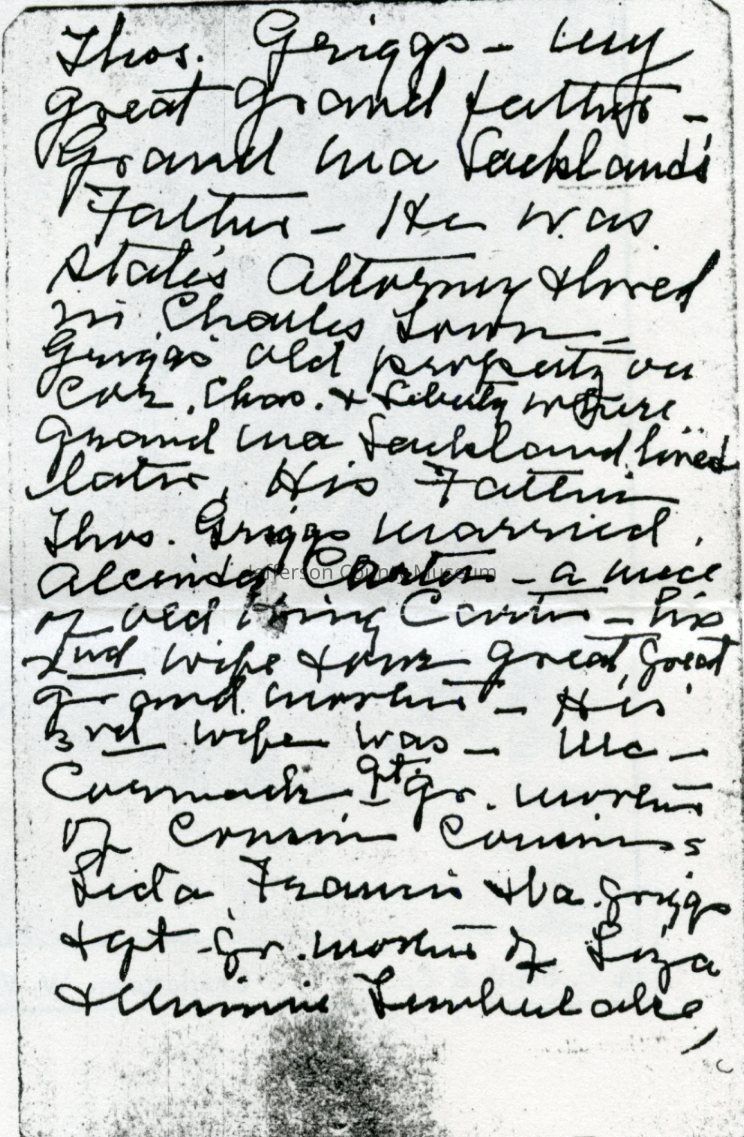 Thos. Griggs - my
great grand father -
Grand ma Lackland's
Father - He was
State's Attorney & lived
in Charles Town -
Griggs old property on
Cor. Chas. & Liberty where
Grand ma Lackland lived
later. His Father
Thos. Griggs married
Alcinda Carter - a niece
Jefferson County Museum
of old King Carter - his
2nd wife & our great, great
grand mother - His
3rd wife was - Mc -
Cormack gt gr. mother
of Cousin Cousins
Lida Francis & Va. Griggs
& gt - gr. mother of Liza
& Minnie Timberlake,